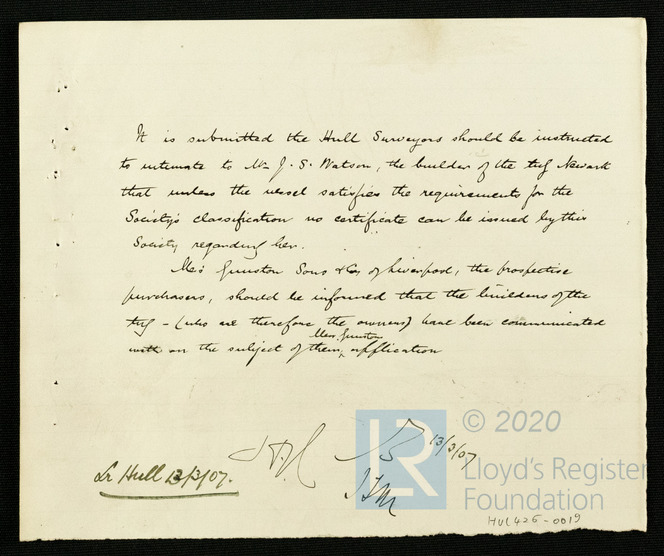 It is submitted the Hull Surveyors should be instructed
to intimate to Mr J. S. Watson, the builder of the tug Newark
that unless the vessel satisfies the requirements for the
Society's classification no certificate can be issued by this
Society regarding her.
Mess Gunston Sons & Co of Liverpool, the prospective
purchasers, should be informed that the builders of the
tug - (who are therefore the owners) have been communicated
Mess Gunston
with on the subject of their application
13/3/07
Lr Hull 13/3/07.
© 2020
LR
Lloyd's Register
Foundation
HUL425-0019